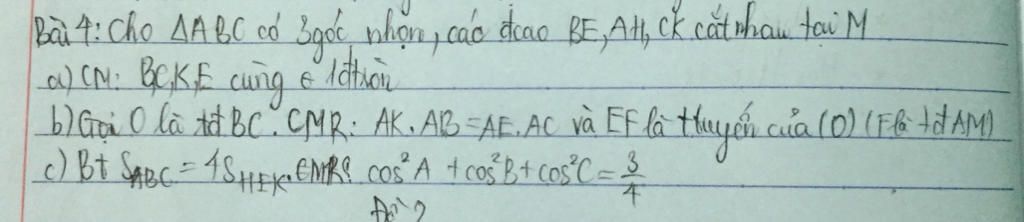 Bài 4: Cho ΔABC có 3 góc nhọn, các đcao BE, AH, CK cắt nhau tại M
a) CM: B,C,K,E cùng ∈ 1 đtròn
b) Gọi O là tđ BC. CMR: AK.AB=AE.AC và EF là ttuyến của (O) (F là tđ AM)
c) Bt S_ABC = 4S_HEK. CMR: cos²A + cos²B + cos²C = 3/4